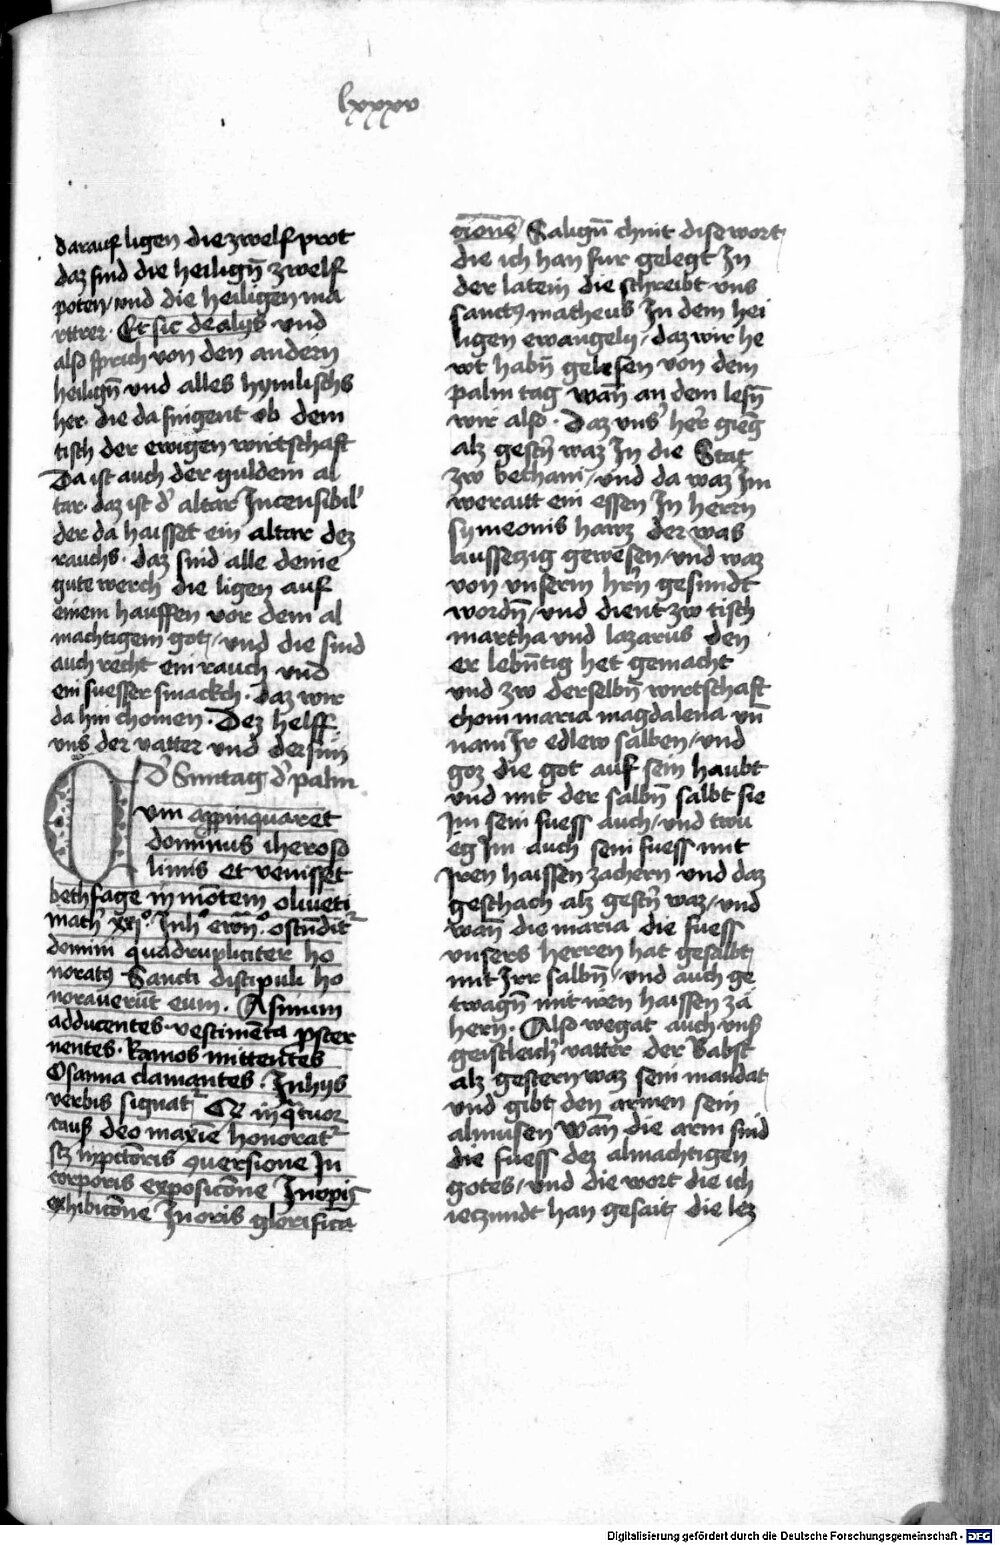 lxxxv
darauf ligen die zwelf prot
daz sind die heiligñ zwelf
poten / und die heiligen ma
rttrer · Et sic de alijs und
also sprich von den andern
heiligñ und alles hymlischs
her · die da singent ob dem
tisch der ewigen wirtschaft
Da ist auch der guldein al
tar · daz ist d' altar Incensibil'
der da haisset ein altar dez
rauchs · daz sind alle deine
gute werch die ligen auf
einem hauffen vor dem al
machtigem got / und die sind
auch recht ein rauch und
ein suesser smackch · daz wir
da hin chomen · Dez helff
uns der vatter und der sun
D' Sunntag d' palm
Cum appinquaret
dominus iheroso
limis et venisset
bethfage in mõtem oliveti
math' xxjº · Inh' ewñº ostñdit'
domini quadrupliciter ho
noratꝰ Sancti discipuli ho
noraverũt eum · Asinum
adducentes · vestimẽta pster
nentes · Ramos mittentes
Osanna clamantes · In hijs
verbis signat' Qr in q̃tuor
causs deo maxie honorat'
scz In pctõris ꝯversione In
corporis exposicõne In opis
exhibicõne In oris glorifica
cione / Saligñ chint dise wort
die ich han fur gelegt In
der latein die schreibt uns
sanctꝰ matheus In dem hei
ligen ewangely / daz wir he
wt habñ gelesen von dem
palm tag wañ an dem lesñ
wir also · Daz uns' her' gieng
alz gest'n waz In die Stat
zw bethani / und da waz Im
weraitt ein essen In herrn
symeonis hawz der was
aussetzig gewesen / und waz
von unserm hrñ gesundt
wordñ / und dient zw tisch
martha und lazarus den
er lebñtig het gemacht
und zw derselbñ wirtschaft
chom maria magdalena uñ
nam Ir edlew salben / und
goz die got auf sein haubt
und mit der salbñ salbt sie
Im sein fuess auch / und twu
eg Im auch sein fuess mit
Iren haissen zachern und daz
geschach alz gest'n waz / und
wañ die maria die fuess
unsers herren hat gesalbt
mit Irr salbñ / und auch ge
twagñ mit iren haissen zä
hern · Also wegat auch uns'
geistleich' vatter der Babst
alz gestern waz sein mandat
und gibt den armen sein
almusen Wañ die arm sind
die fuess dez almachtigen
gotes / und die wort die ich
ietzundt han gesait die lez
Digitalisierung gefördert durch die Deutsche Forschungsgemeinschaft - DFG